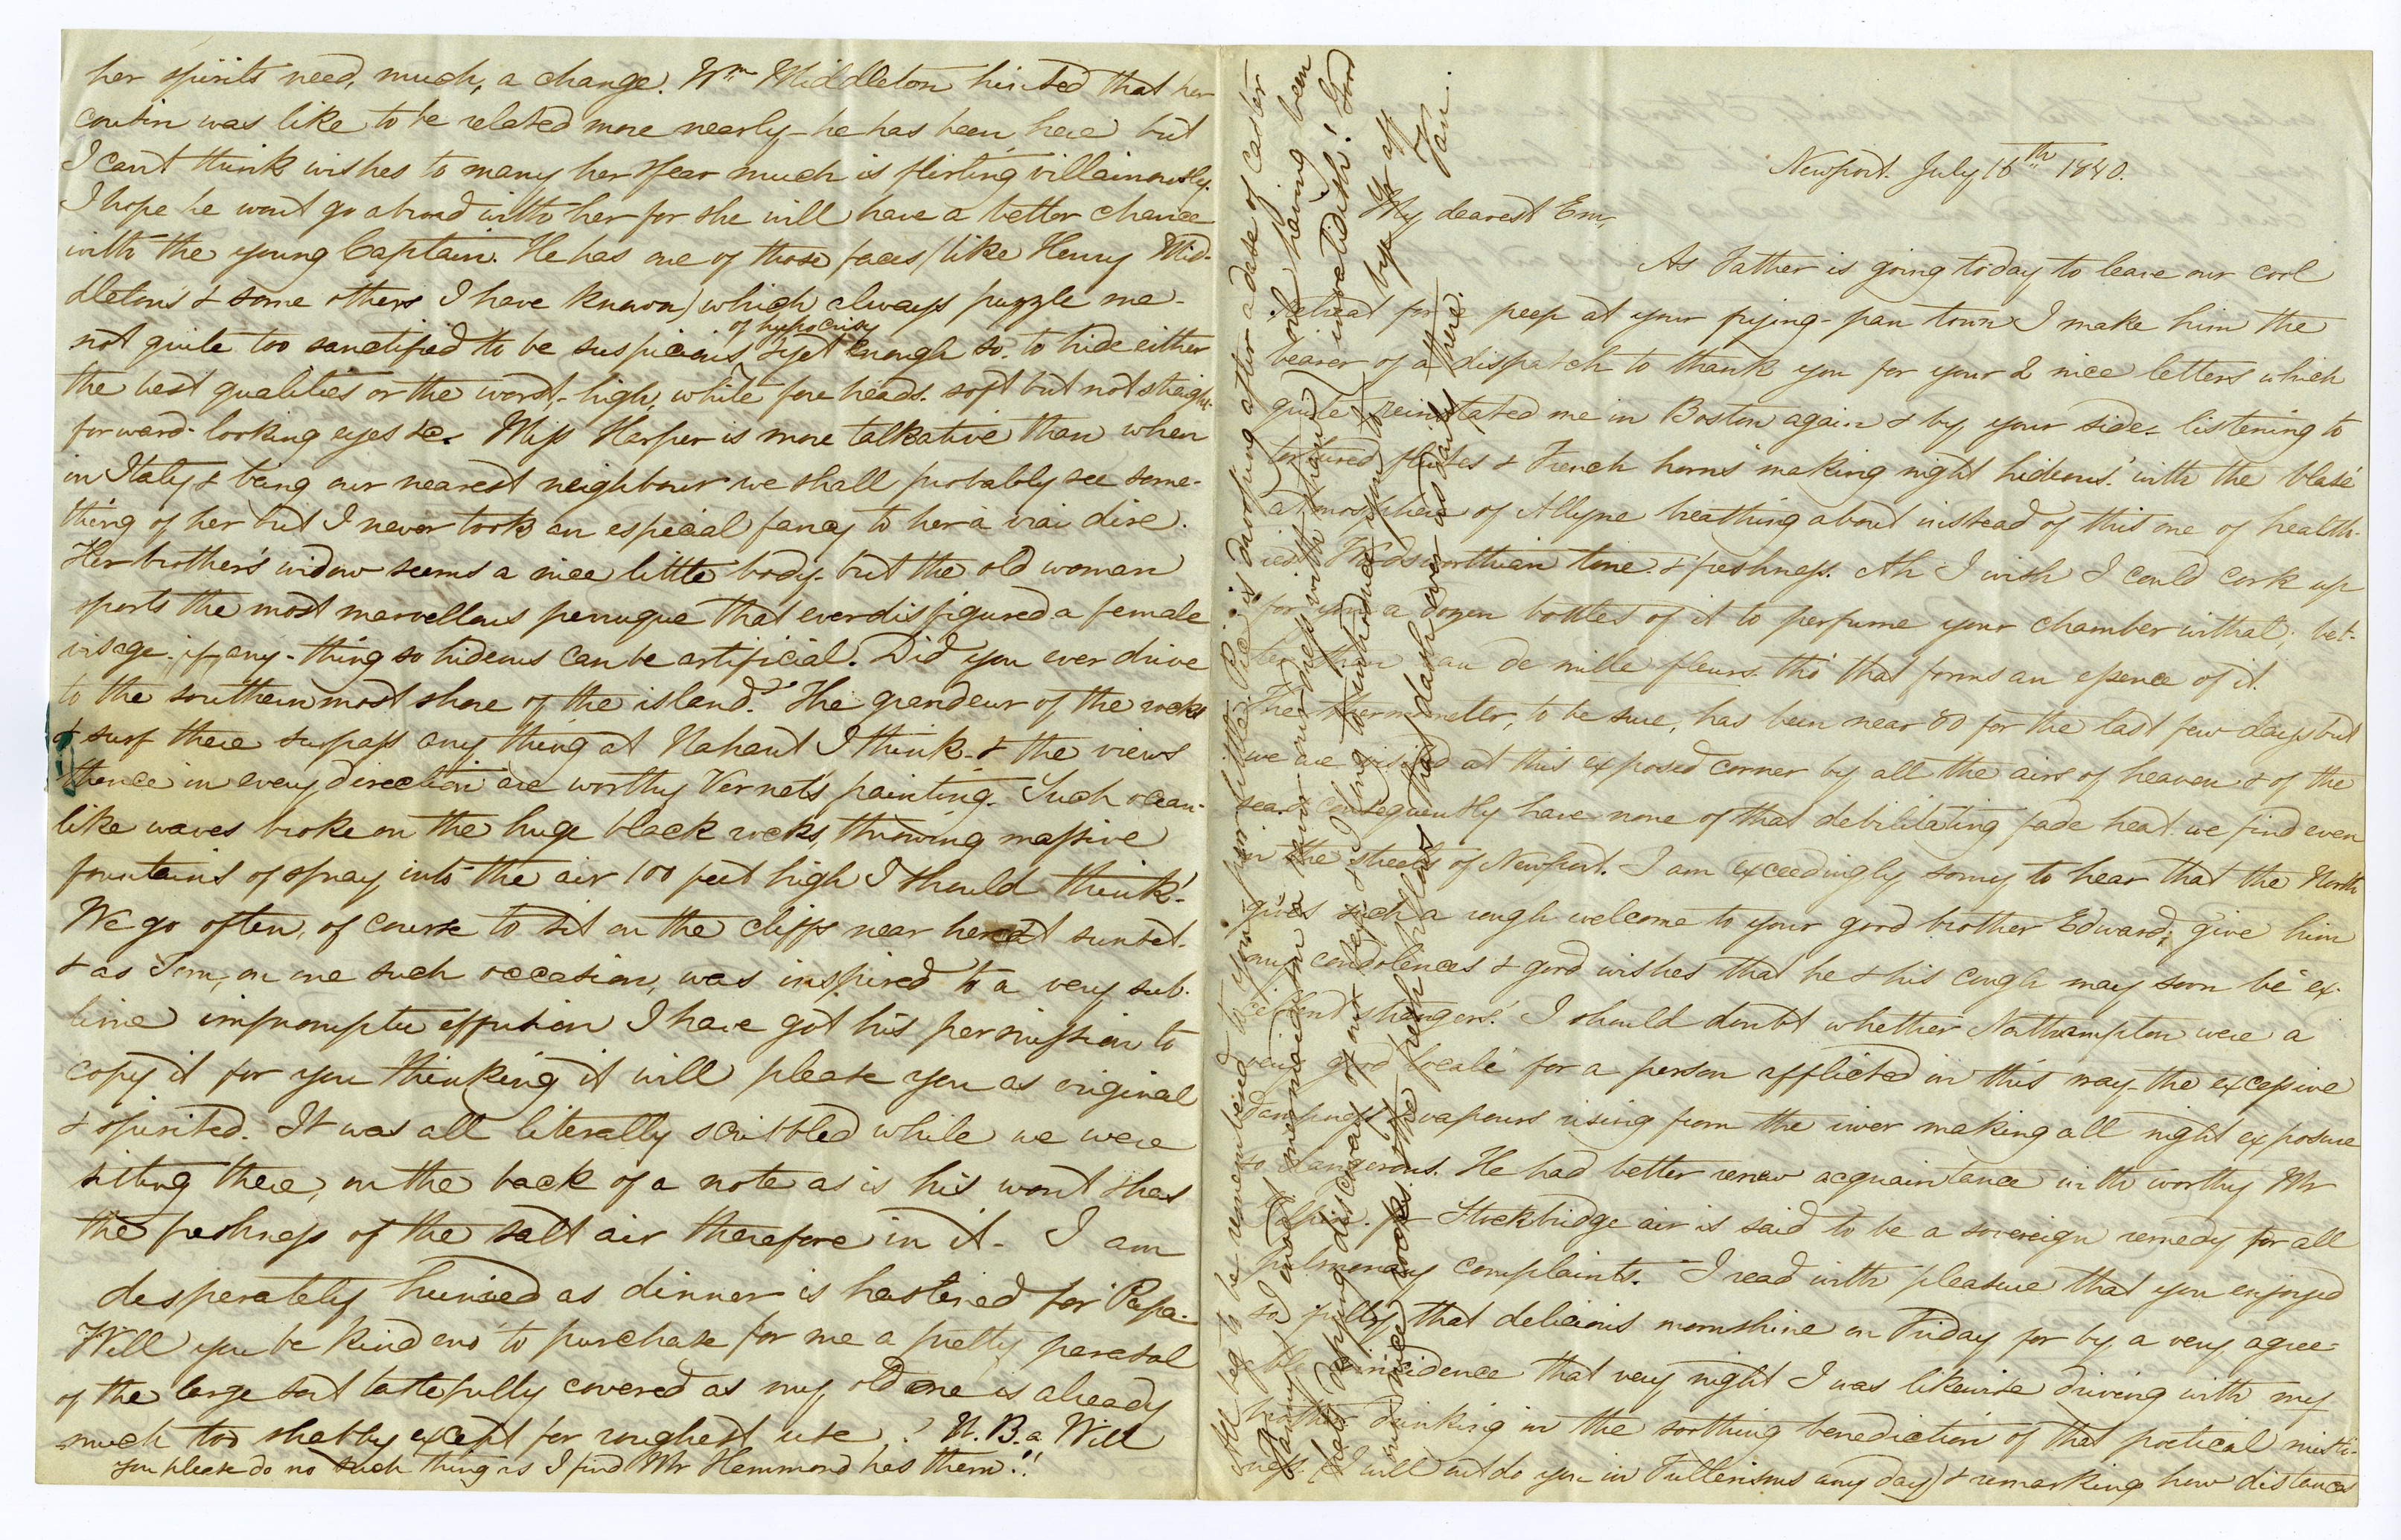 Newport. July 16th 1840.
My dearest Em,
As Father is going to day to leave our cool
retreat for a peep at your frying-pan town I make him the
bearer of a dispatch to thank you for your 2 nice letters which
quite reinstated me in Boston again & by your side - listening to
tortured flutes & French horns "making night hideous" with the blasé
atmosphere of Allyne breathing about instead of this one of health-
iest Wordsworthian tone & freshness. Ah I wish I could cork up
for you a dozen bottles of it to perfume your chamber withal; bet-
ter than eau de mille fleurs tho' that forms an essence of it.
The thermometer, to be sure, has been near 80 for the last few days but
we are visited at this exposed corner by all the airs of heaven & of the
sea & consequently have none of that debilitating fade heat we find even
in the streets of Newport. I am exceedingly sorry to hear that the North
gives such a rough welcome to your good brother Edward; give him
my condolences & good wishes that he & his cough may soon be "ex-
cellent strangers." I should doubt whether Northampton were a
very good locale for a person afflicted in this way - the excessive
dampness & vapours rising from the river making all night exposure
so dangerous. He had better renew acquaintance with worthy Mr
for Stockbridge air is said to be a sovereign remedy for all
pulmonary complaints. I read with pleasure that you enjoyed
so fully that delicious moonshine on Friday for by a very agree-
able coincidence that very night I was likewise driving with my
brother drinking in the soothing benediction of that poetical misti-
ness (I will outdo you in Fullerisms any day) & remarking how distances
her spirits need, much, a change. Wm Middleton hinted that her
cousin was like to be related more nearly - he has been here but
I can't think wishes to marry her & fear much is flirting villainously.
I hope he wont go abroad with her for she will have a better chance
with the young Captain. He has one of those faces (like Henry Mid-
dleton's & some others I have known) which always puzzle me -
not quite too sanctified to be suspicious of hypocrisy & yet enough so to hide either
the best qualities or the worst, - high, white fore heads. soft but not straight-
forward-looking eyes &c. Miss Harper is more talkative than when
in Italy & being our nearest neighbour we shall probably see some-
thing of her but I never took an especial fancy to her à vrai dire.
Her brother's widow seems a nice little body - but the old woman
sports the most marvellous perruque that ever disfigured a female
visage - if any-thing so hideous can be artificial. Did you ever drive
to the southern most shore of the island? The grandeur of the rocks
& surf there surpass any thing at Nahant I think - & the views
thence in every direction are worthy Vernet's painting. Such ocean-
like waves broke on the huge black rocks, throwing massive
fountains of spray into the air 100 feet high I should think!
We go often, of course to sit on the cliffs near here at sunset.
& as Tom, on one such occasion, was inspired to a very sub-
lime impromptu effusion I have got his permission to
copy it for you thinking it will please you as original
& spirited. It was all literally scribbled while we were
sitting there, on the back of a note as is his wont & has
the freshness of the salt air therefore in it - I am
desperately hurried as dinner is hastened for Papa.
Will you be kind eno' to purchase for me a pretty parasol
of the large sort tastefully covered as my old one is already
much too shabby except for roughest use? N.B. a Will
you please do no such thing as I find Mr Hammond has them!!
still beg to be remembered to you - poor little Pie is moping after a dose of Castor
Fanny & I made mermaids on a new our dresses with having been
that appeared discovery of our legs. I long to introduce you to invalidish! Good
our nice rocks. the fresh billows that dash over us daily there. bye Yr aff
Fan.